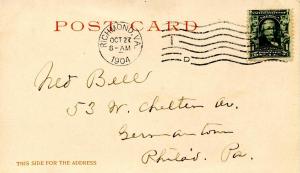 POST CARD
RICHMOND, VA.
OCT 27
8-AM
1904
D
Ned Bell
53 W. Chelten Av.
Germantown
Philad. Pa.
THIS SIDE FOR THE ADDRESS